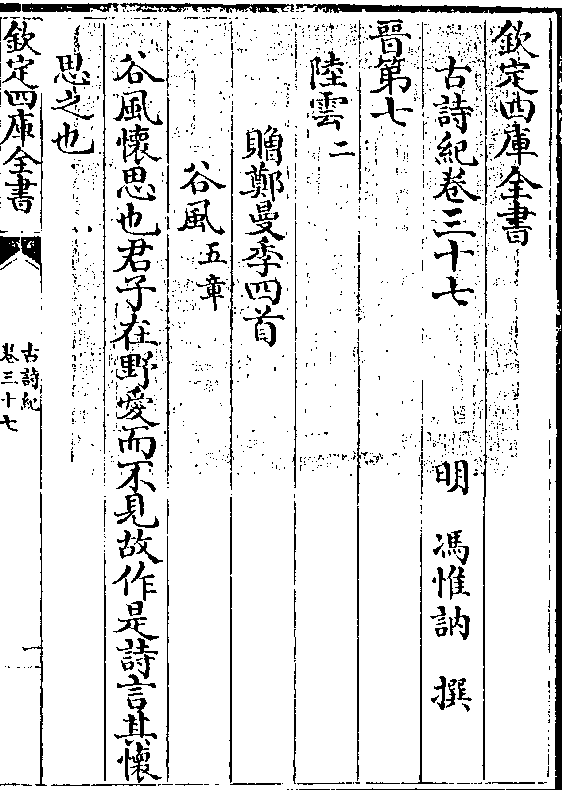 欽定四庫全書
古詩紀卷三十七　明　馮惟訥　撰
晉第七
陸雲二
贈鄭曼季四首
谷風五章
谷風懷思也君子在野愛而不見故作是詩言其懷
思之也
欽定四庫全書
古詩紀
卷三十七
一